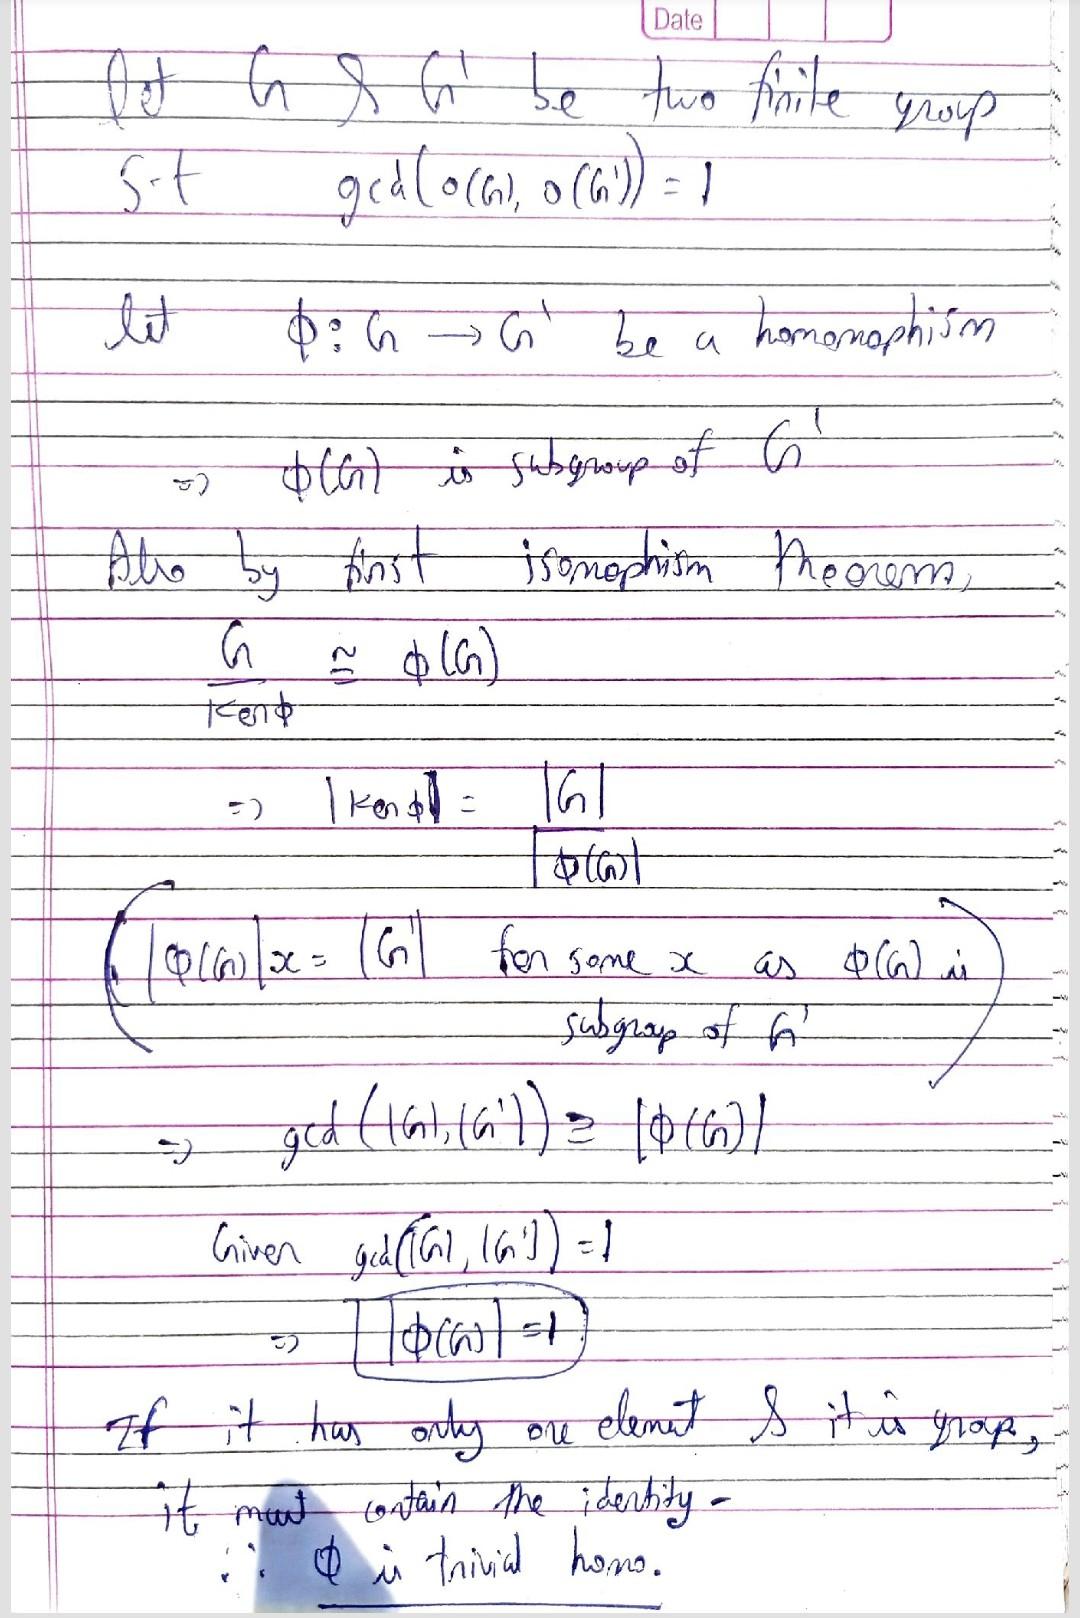 Date
let G & G' be two finite group
s.t gcd(o(G), o(G')) = 1
let φ: G → G' be a homomophism
=> φ(G) is subgroup of G'
Also by first isomophism theorem,
G ≅ φ(G)
Kerφ
=> |Kerφ| = |G|
|φ(G)|
(|φ(G)|x = |G'| for some x as φ(G) is
subgroup of G')
=> gcd(|G|, |G'|) ≥ |φ(G)|
Given gcd(|G|, |G'|) = 1
=> |φ(G)| = 1
If it has only one element & it is group,
it must contain the identity -
∴ φ is trivial homo.